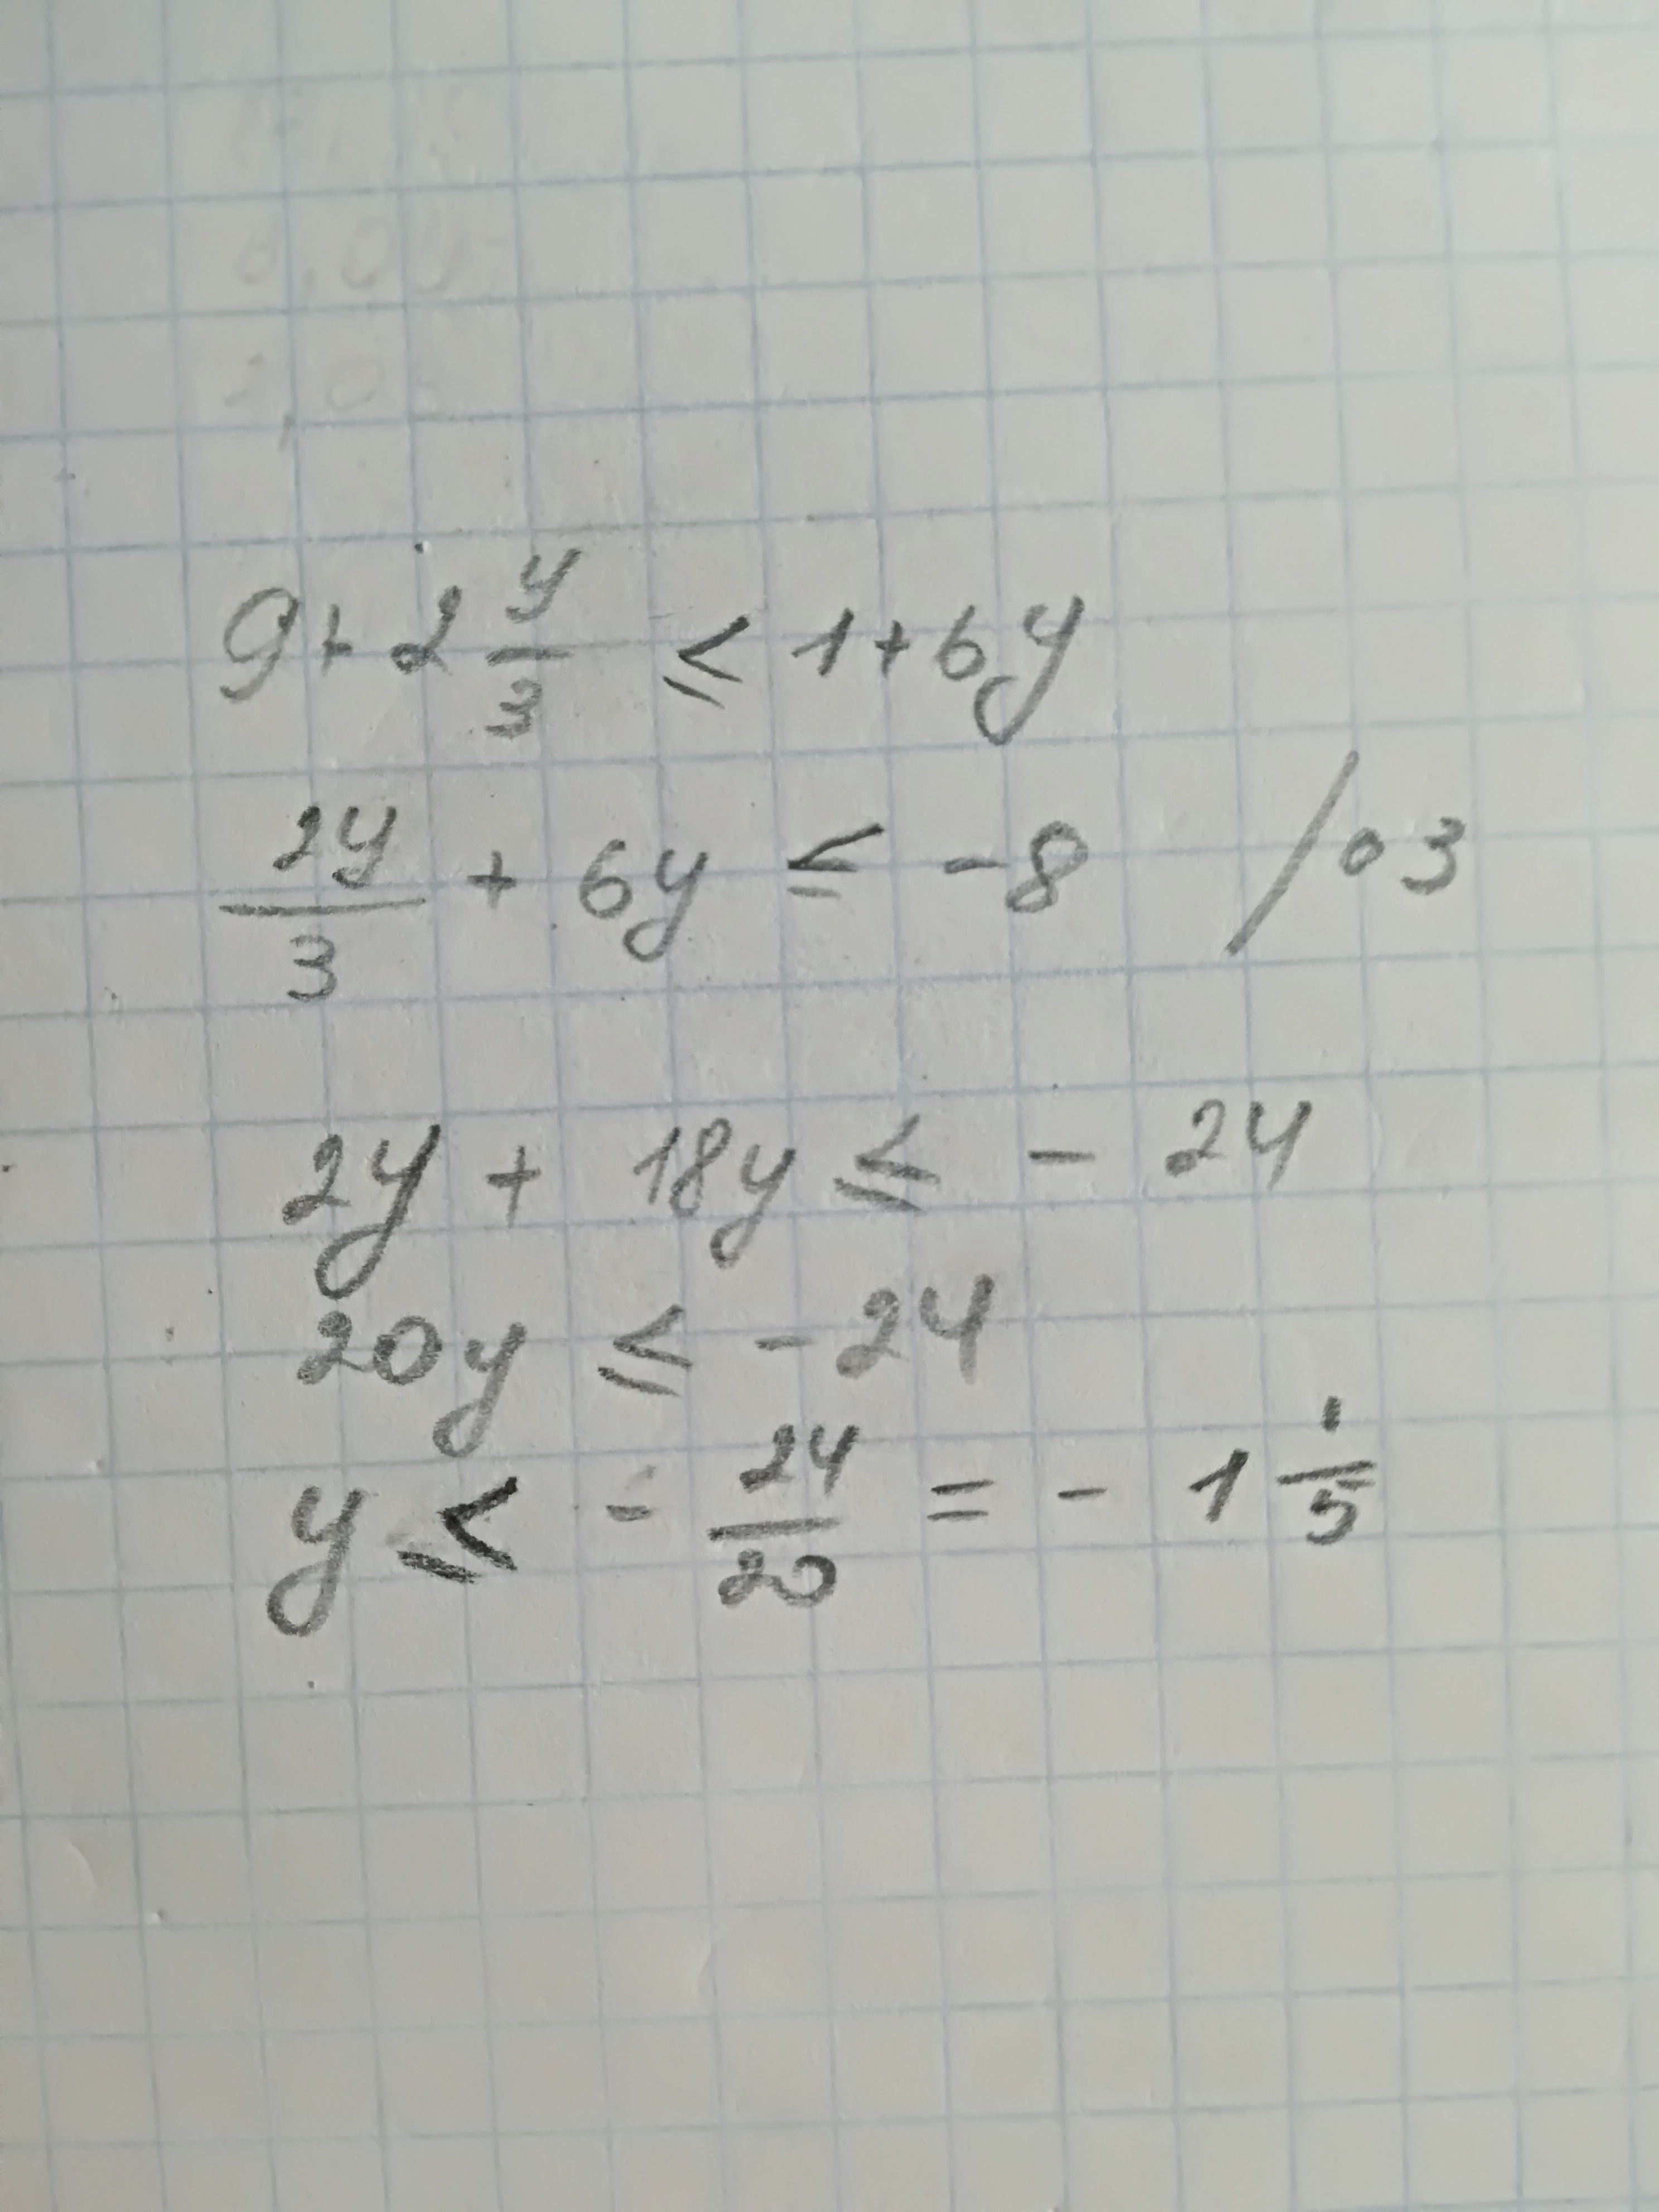 9 + 2 y/3 ≤ 1 + 6y
2y/3 + 6y ≤ -8 / ∘ 3
2y + 18y ≤ - 24
20y ≤ - 24
y ≤ - 24/20 = - 1 1/5